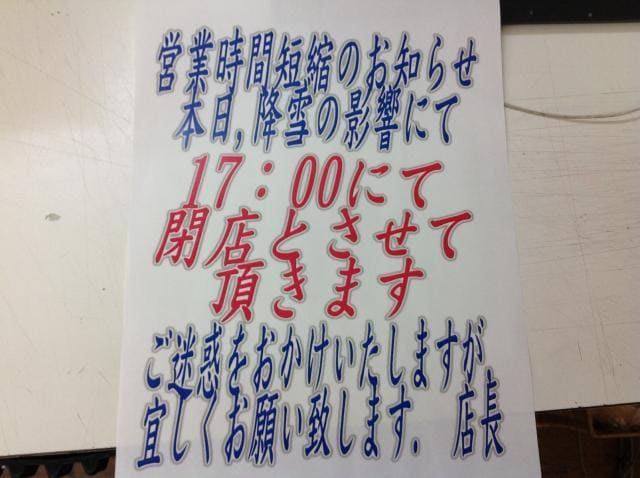 営業時間短縮のお知らせ
本日,降雪の影響にて
17：00にて
閉店とさせて
頂きます
ご迷惑をおかけいたしますが
宜しくお願い致します. 店長